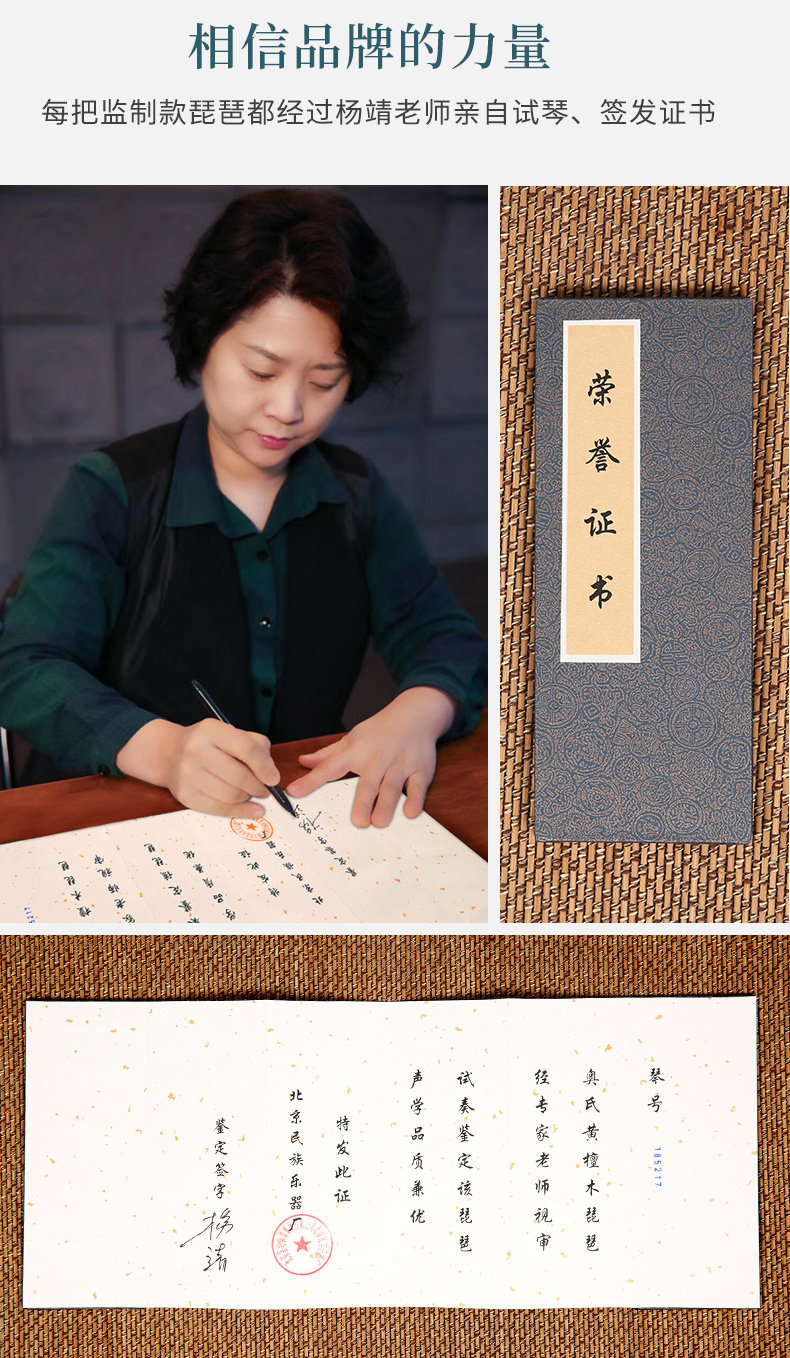 相信品牌的力量
每把监制款琵琶都经过杨靖老师亲自试琴、签发证书
荣誉证书
琴号
185217
奥氏黄檀木琵琶
经专家老师视审
试奏鉴定该琵琶
声学品质兼优
特发此证
北京民族乐器厂
鉴定签字
杨靖